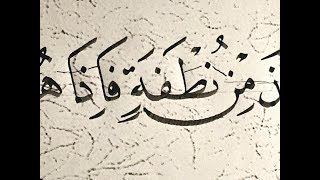 نَ مِنْ نُطْفَةٍ فَاِذَا هُ